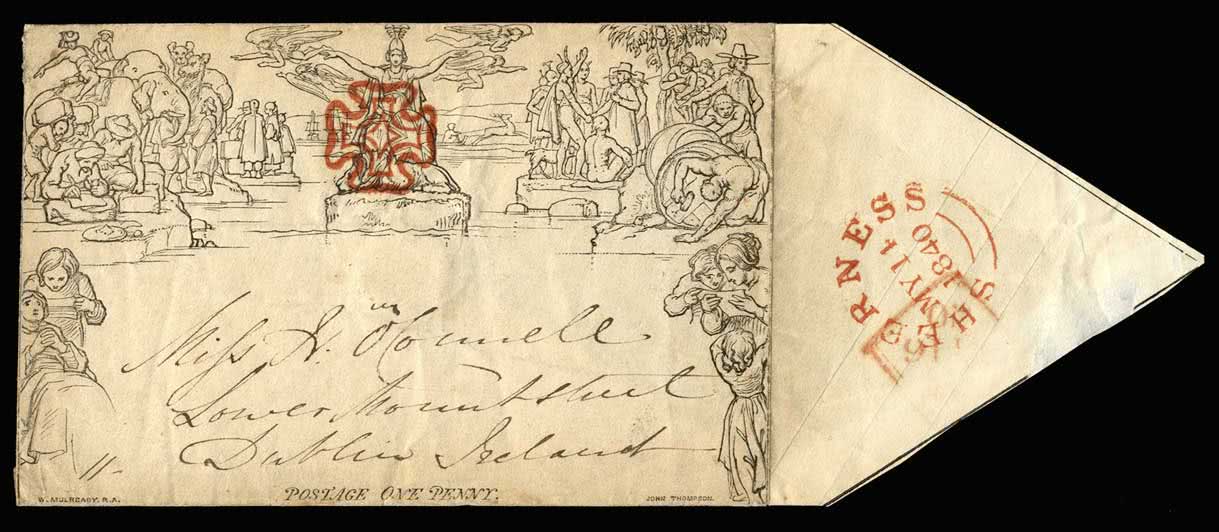 Miss
O'Connell
Lower Mount street
Dublin Ireland
11
W. MULREADY. R.A.
POSTAGE ONE PENNY.
JOHN THOMPSON.
SHEERNESS
MY 11
1840